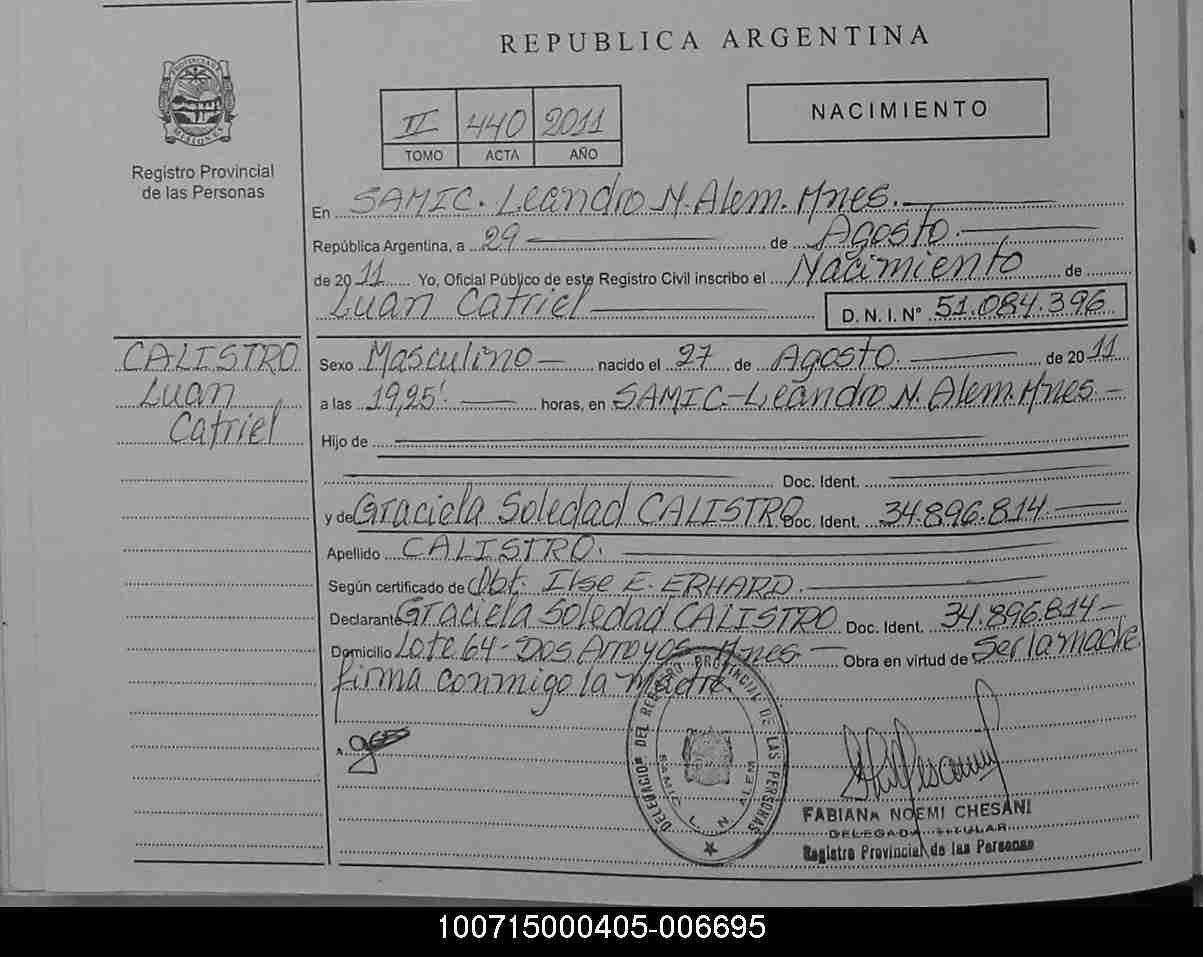 REPUBLICA ARGENTINA
PROVINCIA DE
MISIONES
Registro Provincial
de las Personas
II 440 2011
TOMO ACTA AÑO
NACIMIENTO
En SAMIC. Leandro N. Alem. Mnes.
República Argentina, a 29 de Agosto
de 2011 Yo, Oficial Público de este Registro Civil inscribo el Nacimiento de
Luan Catriel D. N. I. N° 51.084.396
CALISTRO
Luan
Catriel
Sexo Masculino nacido el 27 de Agosto. de 2011
a las 19,25' horas, en SAMIC.-Leandro N. Alem. Mnes.-
Hijo de
Doc. Ident.
y de Graciela Soledad CALISTRO Doc. Ident. 34.896.814
Apellido CALISTRO.
Según certificado de Obt. Ilse E. ERHARD.
Declarante Graciela Soledad CALISTRO Doc. Ident. 34.896.814-
Domicilio Lote 64-Dos Arroyos. Mnes. Obra en virtud de Ser la madre
firma conmigo la Madre.
DELEGACION DEL REGISTRO PROVINCIAL DE LAS PERSONAS
SAMIC L. N. ALEM
FABIANA NOEMI CHESANI
DELEGADA TITULAR
Registro Provincial de las Personas
100715000405-006695